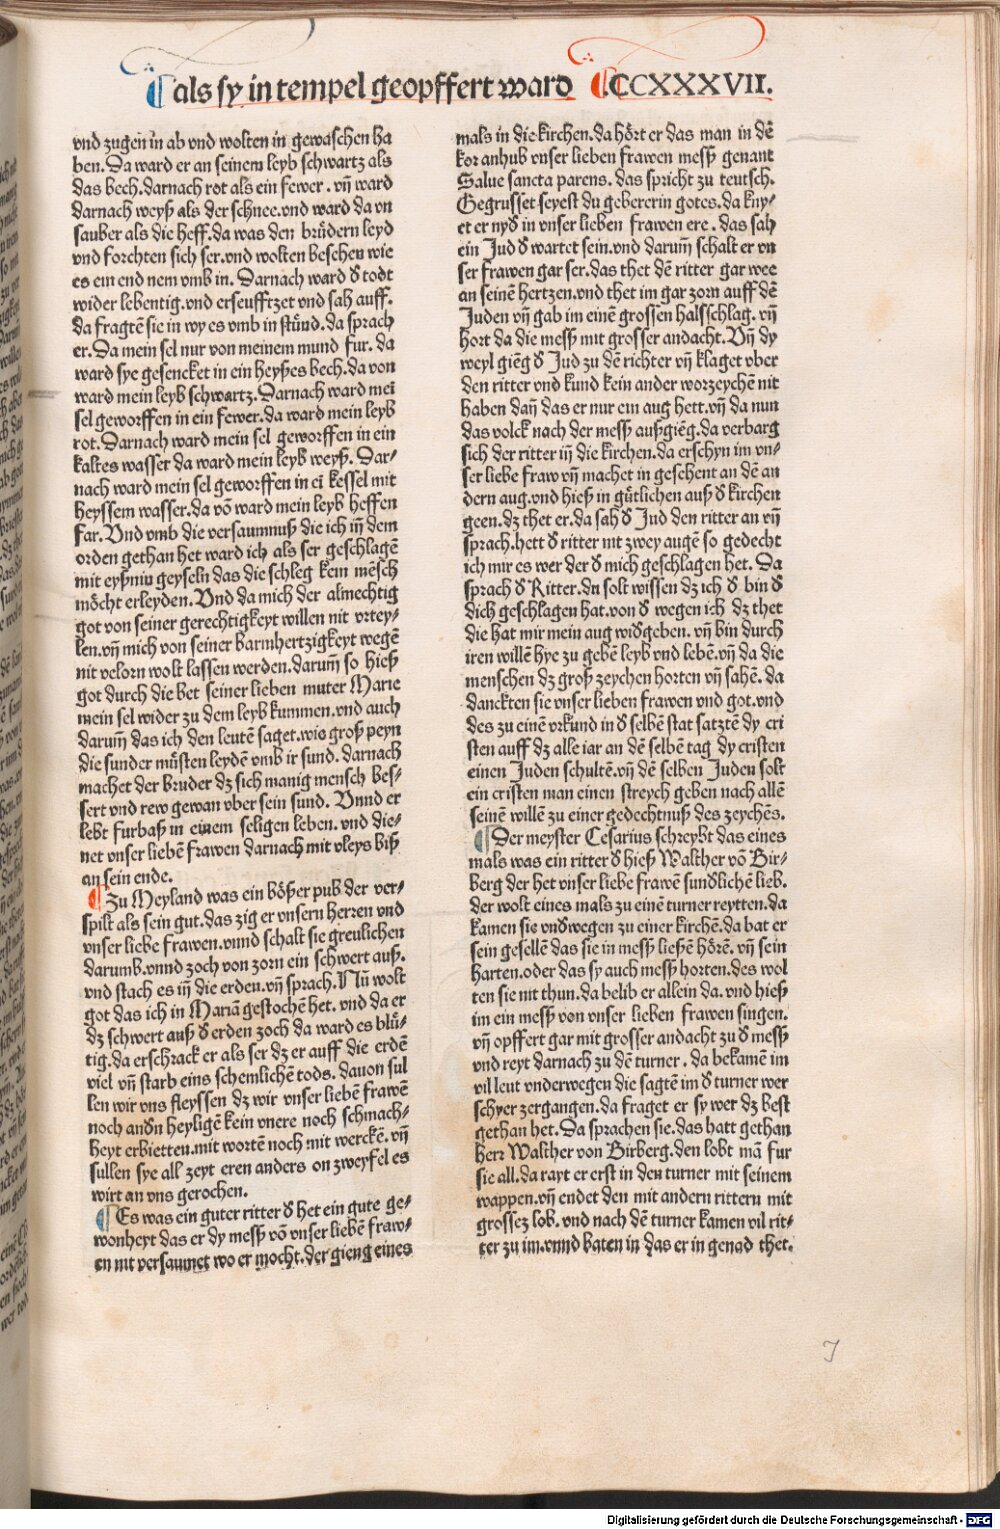 als sy in tempel geopffert ward CCXXXVII.
vnd zugen in ab vnd wolten in gewaschen ha
ben. Da ward er an seinem leyb schwartz als
das bech. darnach rot als ein fewer. vñ ward
darnach weyß als der schnee. vnd ward da vn
sauber als die heff. da was den brüdern leyd
vnd forchten sich ser. vnd wolten besehen wie
es ein end nem vmb in. Darnach ward d̕ todt
wider lebentig. vnd erseufftzet vnd sah auff.
da fragtē sie in wy es vmb in stünd. da sprach
er. Da mein sel nur von meinem mund fur. da
ward sye gesencket in ein heyßes bech. da von
ward mein leyb schwartz. Darnach ward mei
sel geworffen in ein fewer. da ward mein leyb
rot. Darnach ward mein sel geworffen in ein
kaltes wasser da ward mein leyb weyß. Dar⸗
nach ward mein sel geworffen in ei kessel mit
heyssem wasser. da vō ward mein leyb heffen
far. Vnd vmb die versaumnuß die ich iñ dem
orden gethan het ward ich als ser geschlagē
mit eyßniu geyseln das die schleg kein mēsch
möcht erleyden. Vnd da mich der almechtig
got von seiner gerechtigkeyt willen nit vrtey⸗
len. vñ mich von seiner barmhertzigkeyt wegē
nit velorn wolt lassen werden. darum̄ so hieß
got durch die bet seiner lieben muter Marie
mein sel wider zu dem leyb kummen. vnd auch
darum̄ das ich den leutē saget. wie groß peyn
die sunder müsten leydē vmb ir sund. darnach
machet der bruder dz sich manig mensch bes⸗
sert vnd rew gewan vber sein sund. Vnnd er
lebt furbaß in einem seligen leben. vnd die⸗
net vnser liebē frawen darnach mit vleys biß
an sein ende.
Zu Meyland was ein bößer pub der ver⸗
spilt als sein gut. das zig er vnsern herren vnd
vnser liebe frawen. vnnd schalt sie greulichen
darumb. vnnd zoch von zorn ein schwert auß.
vnd stach es iñ die erden. vñ sprach. Nū wolt
got das ich in Mariā gestochē het. vnd da er
dz schwert auß d̕ erden zoch da ward es blü⸗
tig. da erschrack er als ser dz er auff die erdē
viel vñ starb eins schemlichē tods. dauon sul
len wir vns fleyssen dz wir vnser liebē frawē
noch andn̄ heyligē kein vnere noch schmach⸗
heyt erbietten. mit wortē noch mit werckē. vñ
sullen sye all zeyt eren anders on zweyfel es
wirt an vns gerochen.
Es was ein guter ritter d̕ het ein gute ge⸗
wonheyt das er dy messß vō vnser liebē fraw⸗
en nit versaumet wo er mocht. der gieng eines
mals in die kirchen. da hört er das man in dē
kor anhub vnser lieben frawen messß genant
Salue sancta parens. das spricht zu teutsch.
Gegrusset seyest du gebererin gotes. da kny⸗
et er nyd̕ in vnser lieben frawen ere. das sah
ein Jud d̕ wartet sein. vnd darum̄ schalt er vn
ser frawen gar ser. das thet dē ritter gar wee
an seinē hertzen. vnd thet im gar zorn auff dē
Juden vñ gab im einē grossen halsschlag. vñ
hort da die messß mit grosser andacht. Vñ dy
weyl giēg d̕ Jud zu dē richter vñ klaget vber
den ritter vnd kund kein ander worzeychē nit
haben dañ das er nur ein aug hett. vñ da nun
das volck nach der messß außgiēg. da verbarg
sich der ritter iñ die kirchen. da erschyn im vn⸗
ser liebe fraw vñ machet in gesehent an dē an
dern aug. vnd hieß in gütlichen auß d̕ kirchen
geen. dz thet er. da sah d̕ Jud den ritter an vñ
sprach. hett d̕ ritter nit zwey augē so gedecht
ich mir es wer der d̕ mich geschlagen het. Da
sprach d̕ Ritter. du solt wissen dz ich d̕ bin d̕
dich geschlagen hat. von d̕ wegen ich dz thet
die hat mir mein aug wid̕geben. vñ bin durch
iren willē hye zu gebē leyb vnd lebē. vñ da die
menschen dz groß zeychen horten vñ sahē. da
danckten sie vnser lieben frawen vnd got. vnd
des zu einē vrkund in d̕ selbē stat satztē dy cri
sten auff dz alle iar an dē selbē tag dy cristen
einen Juden schultē. vñ dē selben Juden solt
ein cristen man einen streych geben nach allē
seinē willē zu einer gedechtnuß des zeychēs.
Der meyster Cesarius schreybt das eines
mals was ein ritter d̕ hieß Walther vō Bir⸗
berg der het vnser liebe frawē sundlichē lieb.
der wolt eines mals zu einē turner reytten. da
kamen sie vnd̕wegen zu einer kirchē. da bat er
sein gesellē das sie in messß ließē hörē. vñ sein
harten. oder das sy auch messß horten. des wol
ten sie nit thun. da belib er allein da. vnd hieß
im ein messß von vnser lieben frawen singen.
vñ opffert gar mit grosser andacht zu d̕ messß
vnd reyt darnach zu dē turner. da bekamē im
vil leut vnderwegen die sagtē im d̕ turner wer
schyer zergangen. da fraget er sy wer dz best
gethan het. Da sprachen sie. das hatt gethan
herr Walther von Birberg. den lobt mā fur
sie all. da rayt er erst in den turner mit seinem
wappen. vñ endet den mit andern rittern mit
grossez lob. vnd nach dē turner kamen vil rit⸗
ter zu im. vnnd baten in das er in genad thet.
Digitalisierung gefördert durch die Deutsche Forschungsgemeinschaft - DFG